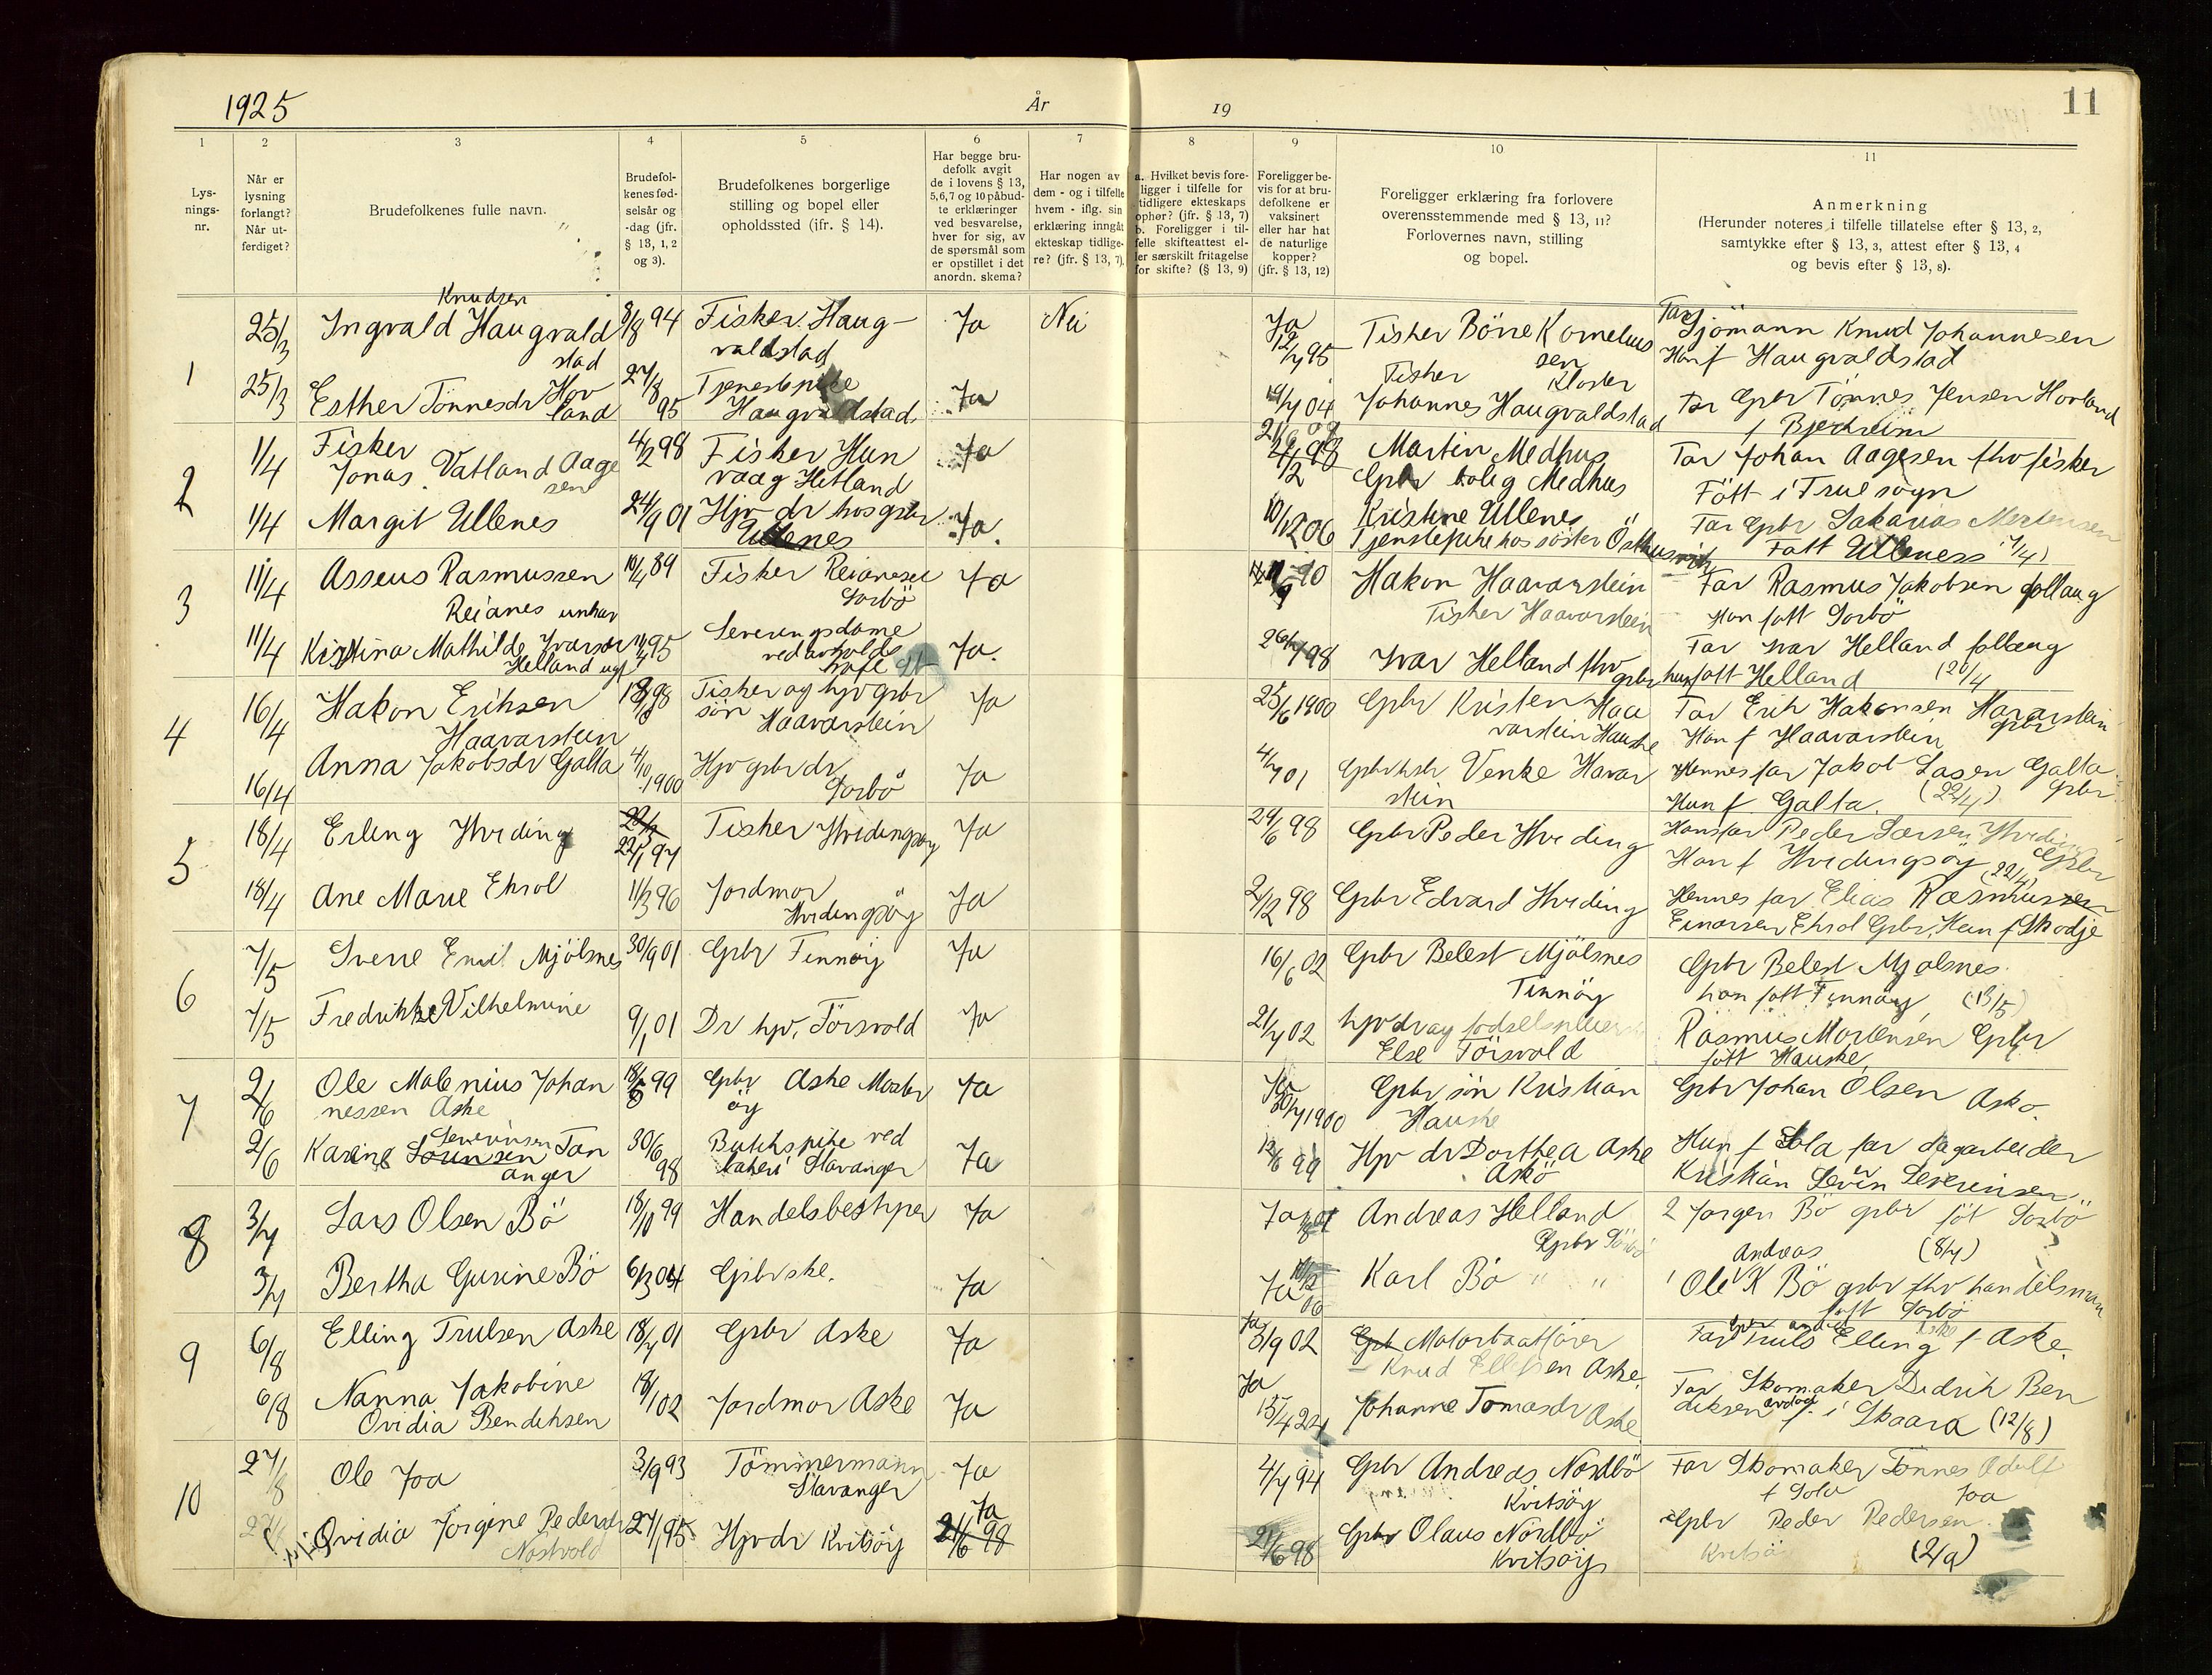 1925
År
19
11
1
2
3
4
5
6
7
8
9
10
11
Lys-
nings-
nr.
Når er
lysning
forlangt?
Når ut-
ferdiget?
Brudefolkenes fulle navn.
Brudefol-
kenes fød-
selsår og
-dag (jfr.
§ 13, 1, 2
og 3).
Brudefolkenes borgerlige
stilling og bopel eller
opholdssted (ifr. § 14).
Har begge bru-
defolk avgit
de i lovens § 13,
5,6,7 og 10 påbud-
te erklæringer
ved besvarelse,
hver for sig, av
de spørsmål som
er opstillet i det
anordn. skema?
Har nogen av
dem - og i tilfelle
hvem - iflg. sin
erklæring inngåt
ekteskap tidlige-
re? (jfr. § 13, 7).
a. Hvilket bevis fore-
ligger i tilfelle for
tidligere ekteskaps
ophør? (jfr. § 13, 7)
b. Foreligger i til-
felle skifteattest el-
ler særskilt fritagelse
for skifte? (§ 13, 9)
Foreligger be-
vis for at bru-
defolkene er
vaksinert
eller har hat
de naturlige
kopper?
(jfr. § 13, 12)
Foreligger erklæring fra forlovere
overensstemmende med § 13, 11?
Forlovernes navn, stilling
og bopel.
Anmerkning
(Herunder noteres i tilfelle tillatelse efter § 13, 2,
samtykke efter § 13, 3, attest efter § 13, 4
og bevis efter § 13, 8).
1
25/3
Knudsen
Ingvald Haugvald
stad
8/8 94
Fisker. Haug-
valdstad
Ja
Nei
Ja
Fisker Börre Kornelius
sen
Fisker Kloster
Far
Sjömann Knud Johannesen
Han f Haugvaldstad
25/3
Esther Tönnesdr Hov
land
27/8 95
Tjenestepike
Haugvaldstad
Ja
04
Johannes Haugvaldstad
Far Gpbr Tönnes Jensen Hovland
f Bjerkreim
2
1/4
Fisker
Jonas Vatland Aage
sen
4/2 98
Fisker Hun
vaag Hetland
Ja
Martin Medhus
Gpbr bolig Medhus
Far Johan Aagesen fhv fisker
Fött i Frue sogn
1/4
Margit Ullenes
24/9 01
Hjv dr hos gpbr
Ullenes
Ja.
10/12 06
Kristine Ullenes
Tjenstepike hos söster Östhusvik
Far Gpbr Sakarias Mortensen
Fött Ullenes
3
11/4
Asseus Rasmussen
Reianes unkar
10/4 89
Fisker Reianes
Sorbö
Ja
Hakon Haavarstein
Fisker Haavarstein
Far Rasmus Jakobsen follaug
Han fött Sorbö
11/4
Kristina Mathilde Ivarsdr
Helland ugf
95
Serveringsdame
ved avholds
kafe
Ja.
98
Ivar Helland fhv
gpbr
Far Ivar Helland follaug
hun fött Helland (20/4
4
16/4
Hakon Eriksen
Haavarstein
98
Fisker og hjv gpbr
sön
Haavarstein
Ja
25/6 1900
Gpbr Kristen Haa
varstein Hauske
Far Erik Hakonsen Havarstein
gpbr
Han f Haavarstein
16/4
Anna Jakobsdr Galta
4/10 1900
Hjv gpbr dr
Sorbö
Ja
4/7 01
Venke Havar
stein
Hennes far Jakob Lasen Galta
gpbr
Hun f Galta. (22/4)
5
18/4
Erling Hviding
22/1 97
Fisker Hvidingsöy
Ja
29/6 98
Gpbr Peder Hviding
Hans far Peder Larsen Hviding
Gpbr
Han f Hvidingsöy (22/4)
18/4
Ane Marie Ekrol
11/3 96
Jordmor
Hvidingsöy
Ja
2/12 98
Gpbr Edvard Hviding
Hennes far Elias Rasmussen
Einarsen Ekrol Gpbr. Hun f Skodje
6
7/5
Sverre Emil Mjölsnes
30/9 01
Gpbr Finnöy
Ja
16/6 02
Gpbr Belest Mjölsnes
Finnöy
Gpbr Belest Mjölsnes.
han fött Finnöy (13/5)
7/5
Fredrikke Vilhelmine
9/1 01
Dr hjv, Försvold
Ja
21/7 02
Else Försvold
Rasmus Mortensen Gpbr
fött Hauske
7
2/6
Ole Malenius Johan
nessen Aske
99
Gpbr Aske Moster
öy
Ja
Ja
1900
Gpbr sön Kristian
Hauske
Gpbr Johan Olsen Askö.
2/6
Severinsen
Karine Sörensen Tan
anger
30/6 98
Butikspike ved
bakeri Stavanger
Ja
99
Hjv dr Dorthea Aske
Askö
Hun f Sola far dagarbeider
Kristian Sevrin Severinsen
8
3/7
Lars Olsen Bö
18/10 99
Handelsbestyrer
Ja
Ja
Andreas Helland
Gpbr Sörbö
2 Jorgen Bö gpbr föt Sorbö
(8/7)
3/7
Bertha Gurine Bö
6/3 04
Gpbrske.
Ja
Ja
Karl Bö " "
Andreas
1 Ole K Bö gpbr fhv handelsman
fött Sorbö
9
6/8
Elling Trulsen Aske
18/7 01
Gpbr Aske
Ja
Ja
3/9 02
Gpb Motorbaatförer
Knud Ellefsen Aske.
Far Truls Elling f Aske
6/8
Nanna Jakobine
Ovidia Bendiksen
18/1 02
Jordmor Aske
Ja
Ja
15/4 24
Johanne Tomasdr Aske
Far Skomaker Didrik Ben
diksen avdöd f i Skaara (12/8)
10
27/8
Ole Joa
3/9 93
Tömmermann
Stavanger
Ja
4/7 94
Gpbr Andreas Nordbö
Kvitsöy
Far Skomaker Tönnes Adolf
f Sola Joa
Ovidia Jorgine Pedersdr
Nostvold
27/1 95
Hjv dr Kvitsöy
Ja
21/6 98
21/6 98
Gpbr Olaus Nordbö
Kvitsöy
Gpbr Peder Pedersen
Kvitsöy (2/9)